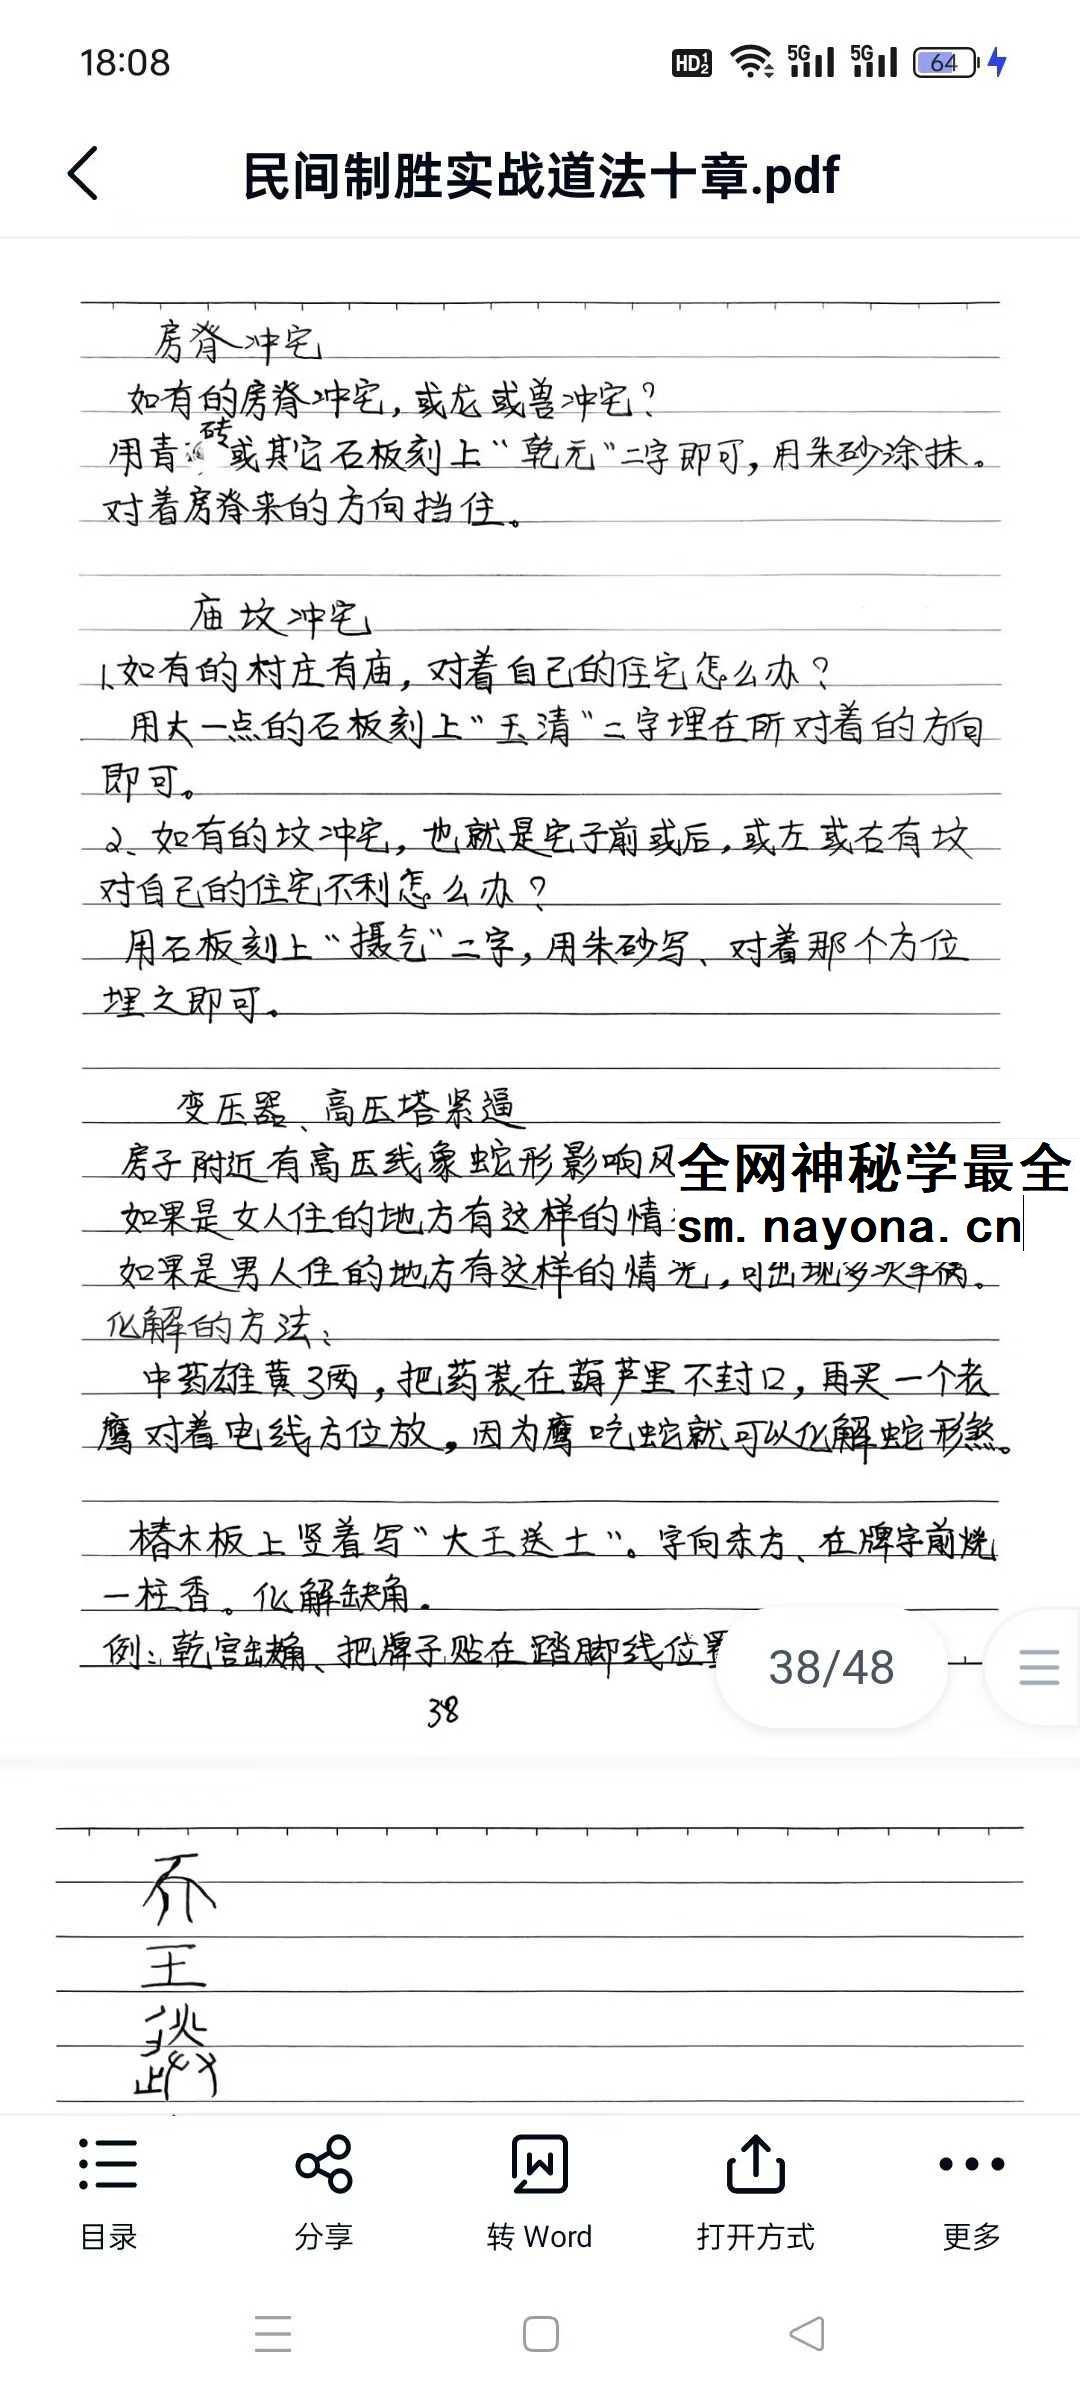 18:08
HD 1 2 5G 5G 64
民间制胜实战道法十章.pdf
房脊冲宅
如有的房脊冲宅，或龙或兽冲宅？
用青砖或其它石板刻上“乾元”二字即可，用朱砂涂抹。
对着房脊来的方向挡住。
庙坟冲宅
1、如有的村庄有庙，对着自己的住宅怎么办？
用大一点的石板刻上“玉清”二字埋在所对着的方向
即可。
2、如有的坟冲宅，也就是宅子前或后，或左或右有坟
对自己的住宅不利怎么办？
用石板刻上“摄气”二字，用朱砂写、对着那个方位
埋之即可。
变压器、高压塔紧逼
房子附近有高压线象蛇形影响风
全网神秘学最全
如果是女人住的地方有这样的情
sm.nayona.cn
如果是男人住的地方有这样的情况，可出现多次车祸。
化解的方法：
中药雄黄3两，把药装在葫芦里不封口，再买一个老
鹰对着电线方位放，因为鹰吃蛇就可以化解蛇形煞。
椿木板上竖着写“大王送土”。字向东方、在牌字前烧
一柱香。化解缺角.
例：乾宫缺角、把牌子贴在踏脚线位置
38/48
38
王
目录
分享
转 Word
打开方式
更多